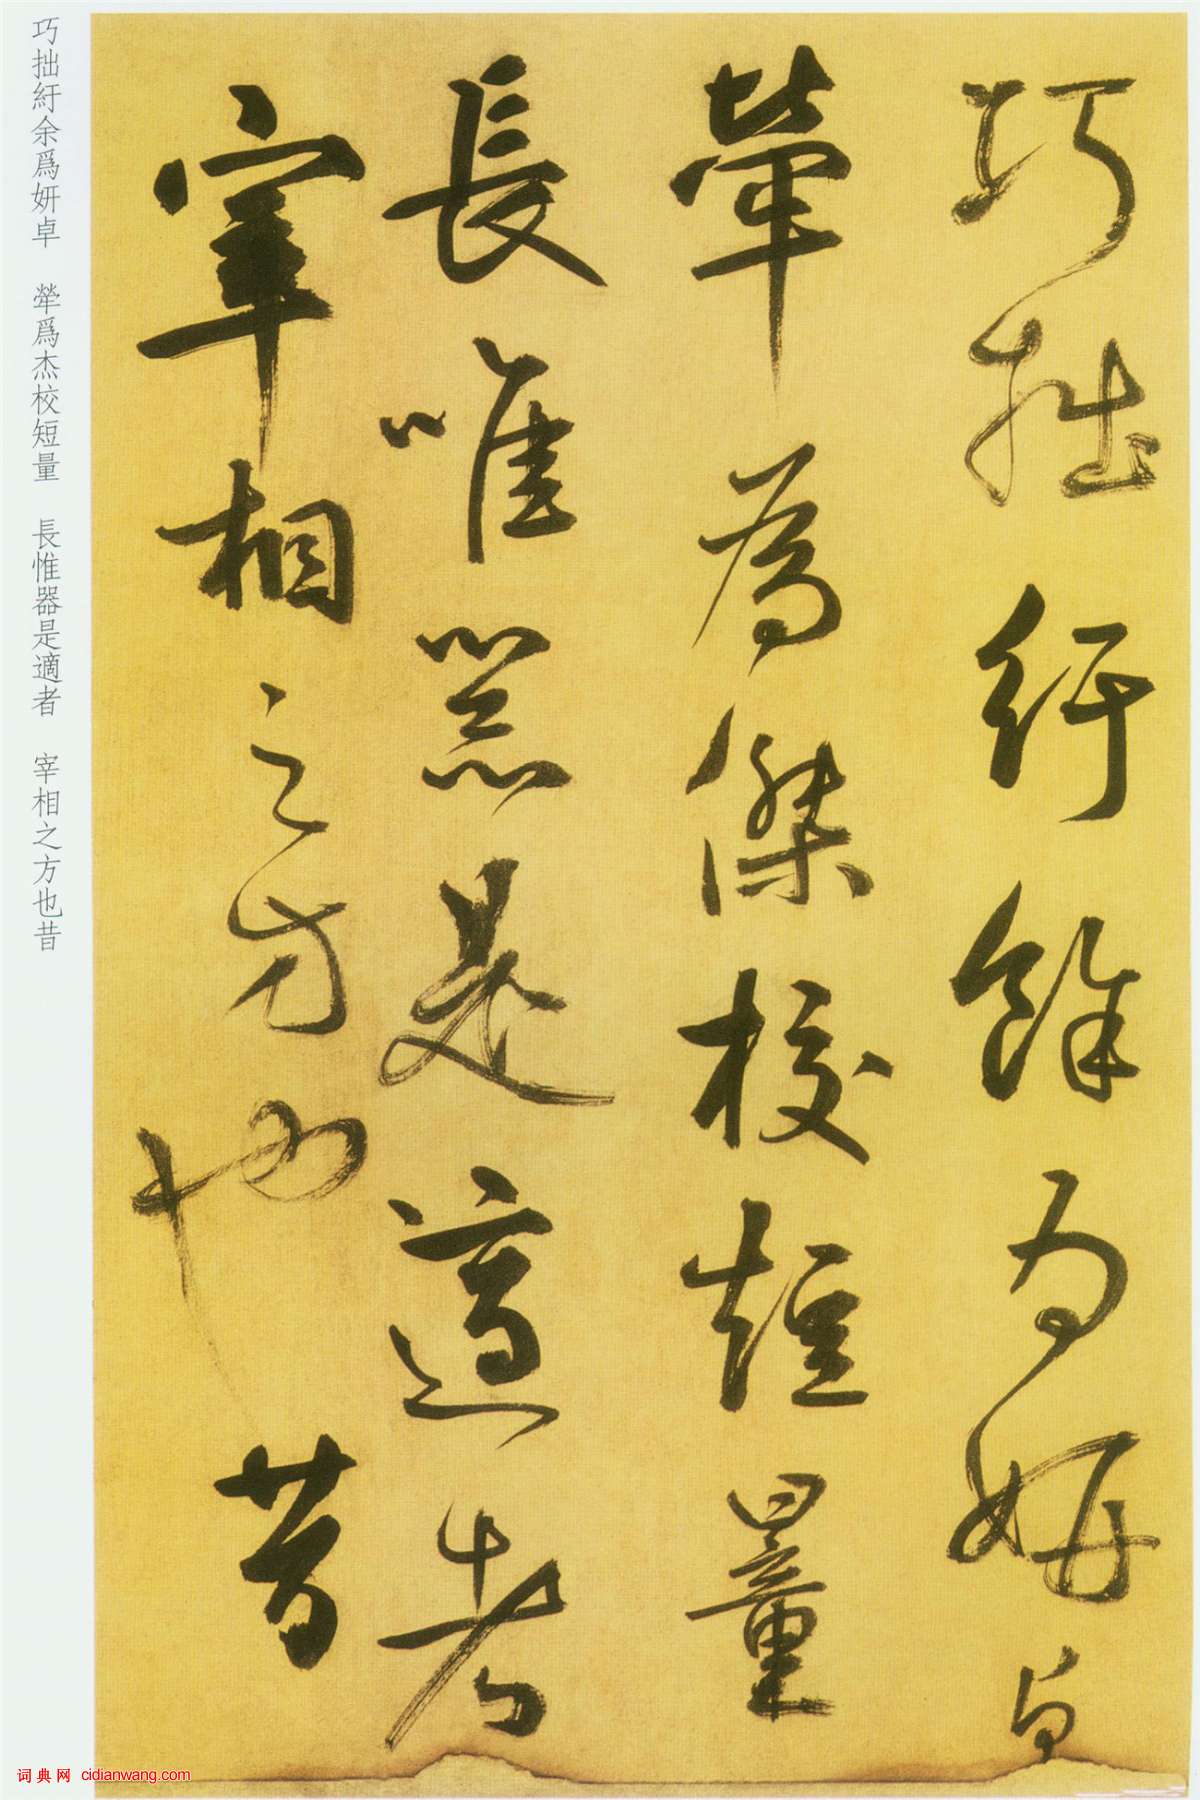 巧拙紆餘为妍卓
犖為傑校短量
長惟器是適者
宰相之方也昔
巧拙紆余爲妍卓 犖爲杰校短量 長惟器是適者 宰相之方也昔
词典网 cidianwang.com